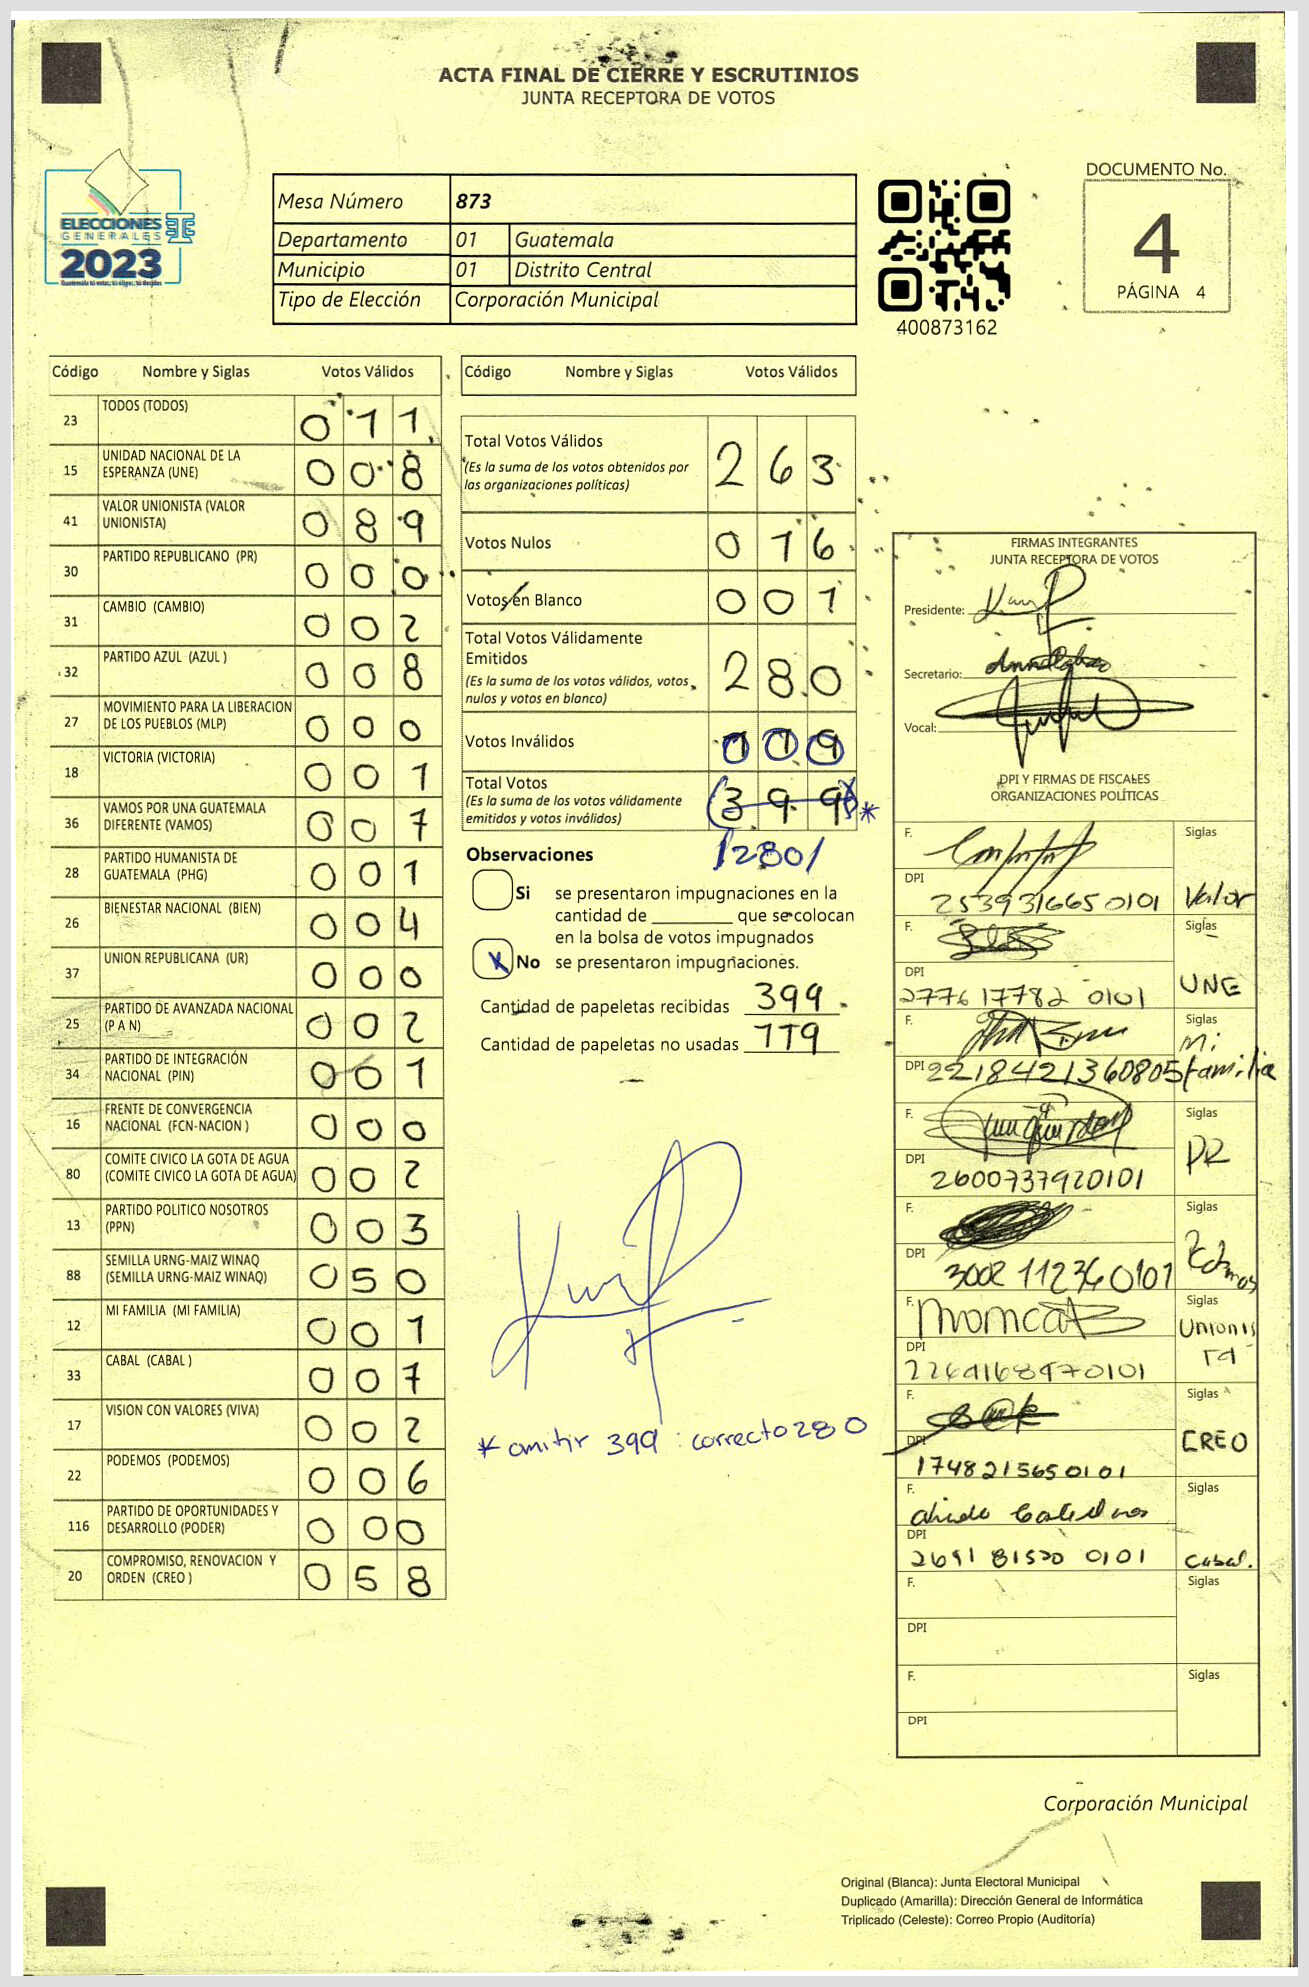 ACTA FINAL DE CIERRE Y ESCRUTINIOS
JUNTA RECEPTORA DE VOTOS
ELECCIONES
GENERALES
2023
Mesa Número 873
Departamento 01 Guatemala
Municipio 01 Distrito Central
Tipo de Elección Corporación Municipal
400873162
DOCUMENTO No.
4
PÁGINA 4
Código Nombre y Siglas Votos Válidos
23 TODOS (TODOS) 0 1 1
15 UNIDAD NACIONAL DE LA ESPERANZA (UNE) 0 0 8
41 VALOR UNIONISTA (VALOR UNIONISTA) 0 8 9
30 PARTIDO REPUBLICANO (PR) 0 0 0
31 CAMBIO (CAMBIO) 0 0 2
32 PARTIDO AZUL (AZUL ) 0 0 8
27 MOVIMIENTO PARA LA LIBERACION DE LOS PUEBLOS (MLP) 0 0 0
18 VICTORIA (VICTORIA) 0 0 1
36 VAMOS POR UNA GUATEMALA DIFERENTE (VAMOS) 0 0 7
28 PARTIDO HUMANISTA DE GUATEMALA (PHG) 0 0 1
26 BIENESTAR NACIONAL (BIEN) 0 0 4
37 UNION REPUBLICANA (UR) 0 0 0
25 PARTIDO DE AVANZADA NACIONAL (P A N) 0 0 2
34 PARTIDO DE INTEGRACIÓN NACIONAL (PIN) 0 0 1
16 FRENTE DE CONVERGENCIA NACIONAL (FCN-NACION ) 0 0 0
80 COMITE CIVICO LA GOTA DE AGUA (COMITE CIVICO LA GOTA DE AGUA) 0 0 2
13 PARTIDO POLITICO NOSOTROS (PPN) 0 0 3
88 SEMILLA URNG-MAIZ WINAQ (SEMILLA URNG-MAIZ WINAQ) 0 5 0
12 MI FAMILIA (MI FAMILIA) 0 0 1
33 CABAL (CABAL ) 0 0 7
17 VISION CON VALORES (VIVA) 0 0 2
22 PODEMOS (PODEMOS) 0 0 6
116 PARTIDO DE OPORTUNIDADES Y DESARROLLO (PODER) 0 0 0
20 COMPROMISO, RENOVACION Y ORDEN (CREO ) 0 5 8
Código Nombre y Siglas Votos Válidos
Total Votos Válidos 2 6 3
(Es la suma de los votos obtenidos por
las organizaciones políticas)
Votos Nulos 0 1 6
Votos en Blanco 0 0 1
Total Votos Válidamente
Emitidos 2 8 0
(Es la suma de los votos válidos, votos
nulos y votos en blanco)
Votos Inválidos
Total Votos 3 9 9 *
(Es la suma de los votos válidamente
emitidos y votos inválidos)
/280/
Observaciones
Si se presentaron impugnaciones en la
cantidad de ________ que se colocan
en la bolsa de votos impugnados
X No se presentaron impugnaciones.
Cantidad de papeletas recibidas 399
Cantidad de papeletas no usadas 119
* omitir 399 : correcto 280
FIRMAS INTEGRANTES
JUNTA RECEPTORA DE VOTOS
Presidente:
Secretario:
Vocal:
DPI Y FIRMAS DE FISCALES
ORGANIZACIONES POLÍTICAS
F. Siglas
DPI 2539316650101 Valor
F. Siglas
DPI 277617782 0101 UNE
F. Siglas
DPI 2218421360805 Mi familia
F. Siglas
DPI 2600737920101 PR
F. Siglas
DPI 3002 112340101
F. Siglas
DPI Unionista
F. Siglas
DPI 1748215650101 CREO
F. Siglas
DPI 2691 81520 0101 Cabal.
F. Siglas
DPI
F. Siglas
DPI
Corporación Municipal
Original (Blanca): Junta Electoral Municipal
Duplicado (Amarilla): Dirección General de Informática
Triplicado (Celeste): Correo Propio (Auditoría)